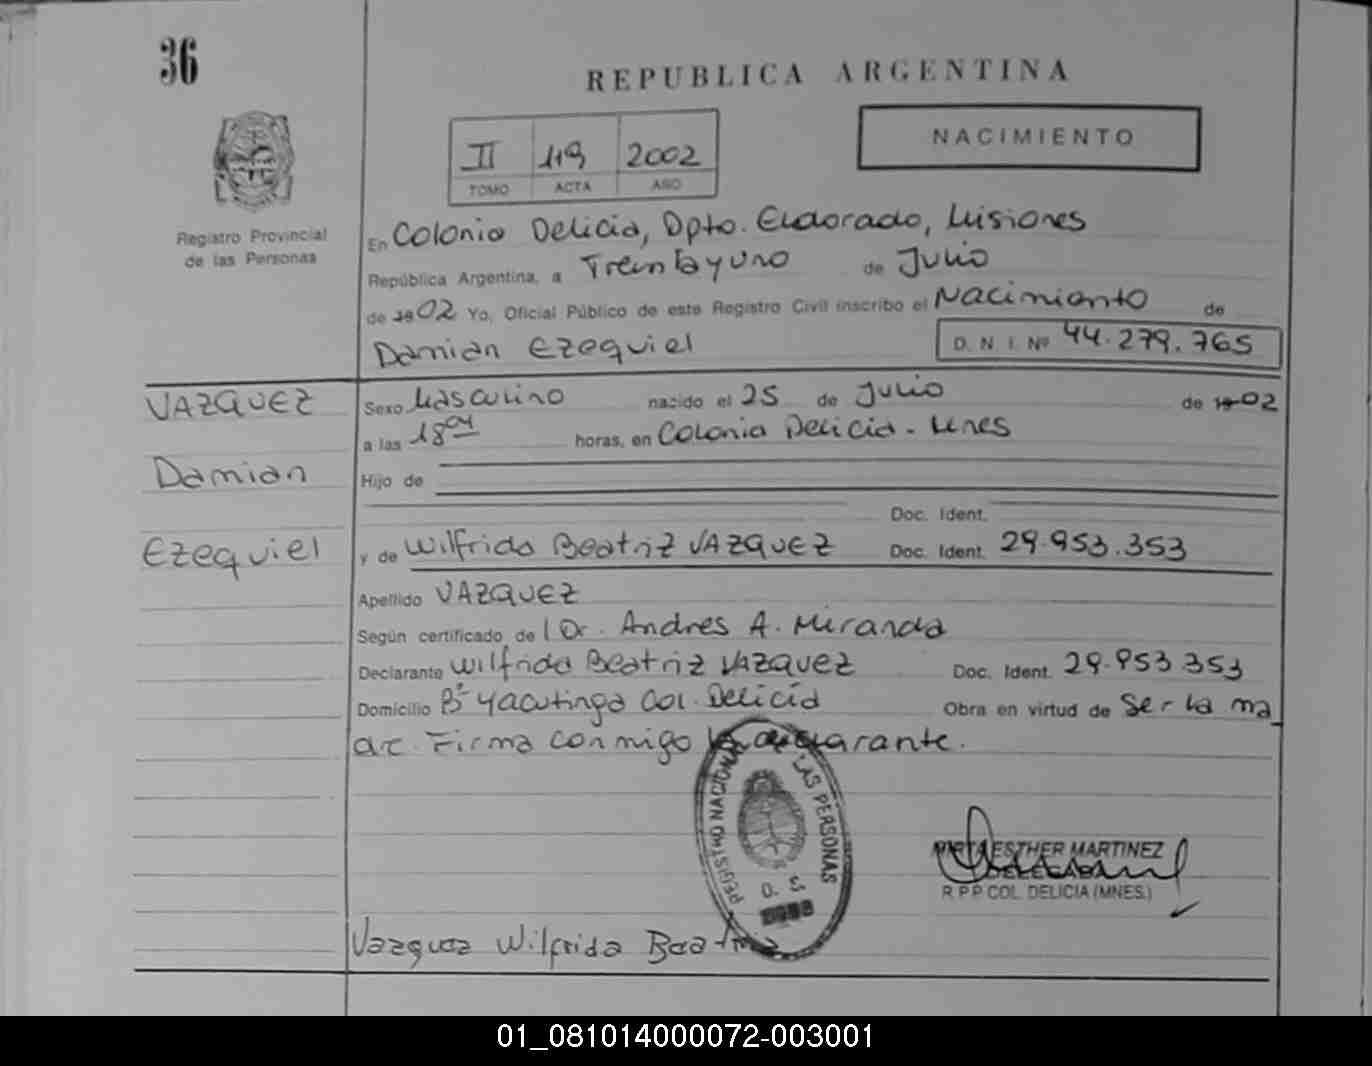 36
REPUBLICA ARGENTINA
NACIMIENTO
II 119 2002
TOMO ACTA AÑO
Registro Provincial
de las Personas
En Colonia Delicia, Dpto. Eldorado, Misiones
República Argentina, a Treintayuno de Julio
de 1902 Yo, Oficial Público de este Registro Civil inscribo el Nacimiento de
Damian Ezequiel D. N. I. Nº 44.279.765
VAZQUEZ
Damian
Ezequiel
Sexo Masculino nacido el 25 de Julio de 1902
a las 18 horas, en Colonia Delicia - Mnes
Hijo de
Doc. Ident.
y de Wilfrida Beatriz VAZQUEZ Doc. Ident. 29.953.353
Apellido VAZQUEZ
Según certificado de l Dr. Andres A. Miranda
Declarante Wilfrida Beatriz VAZQUEZ Doc. Ident. 29.953 353
Domicilio Bº Yacutinga Col. Delicia Obra en virtud de Ser la ma
dre. Firma conmigo la declarante.
REGISTRO NACIONAL LAS PERSONAS
ESTHER MARTINEZ
DELEGADA
R.P.P. COL. DELICIA (MNES.)
Vazquez Wilfrida Beatriz
01_081014000072-003001